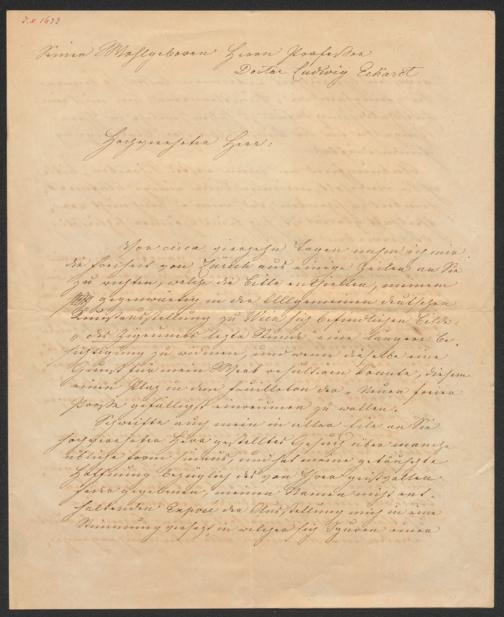 J.N. 1633
Seiner Wohlgeboren Herrn Professor
Doctor Ludwig Eckardt
Hochverehrter Herr,
Vor circa vierzehn Tagen nahm ich mir
die Freiheit von Zürich aus einige Zeilen an Sie
zu richten, welche die Bitte enthielten, meinem
gegenwärtig in der Allgemeinen deutschen
Kunstausstellung zu Wien sich befindlichen Bilde,
des Zigeuners letzte Stunde eine längere Be-
sichtigung zu widmen, und wenn dieselbe eine
Gunst für mein Werk resultiren könnte, diesem
einen Platz in dem Feuilleton der Neuen freien
Presse gefälligst einräumen zu wollen.
Schweifte auch mein in aller Eile an Sie
hochverehrter Herr gestelltes Gesuch über manche
übliche Form hinaus, und hat meine getäuschte
Hoffnung bezüglich des von Ihrer geistvollen
Feder gegebenen, meinen Namen nicht ent-
haltenden Exposé der Ausstellung mich in eine
Stimmung versetzt in welcher sich Spuren einer